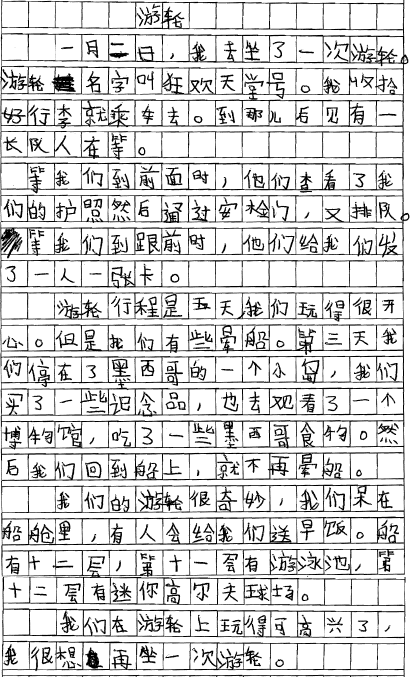 游轮
一月二日，我去坐了一次游轮。
游轮名字叫狂欢天堂号。我收拾
好行李就乘车去。到那儿后见有一
长队人在等。
等我们到前面时，他们查看了我
们的护照然后通过安检门，又排队。
等我们到跟前时，他们给我们发
了一人一张卡。
游轮行程是五天，我们玩得很开
心。但是我们有些晕船。第三天我
们停在了墨西哥的一个小岛，我们
买了一些识念品，也去观看了一个
博物馆，吃了一些墨西哥食物。然
后我们回到船上，就不再晕船。
我们的游轮很奇妙，我们呆在
船舱里，有人会给我们送早饭。船
有十二层，第十一层有游泳池，第
十二层有迷你高尔夫球场。
我们在游轮上玩得可高兴了，
我很想再坐一次游轮。